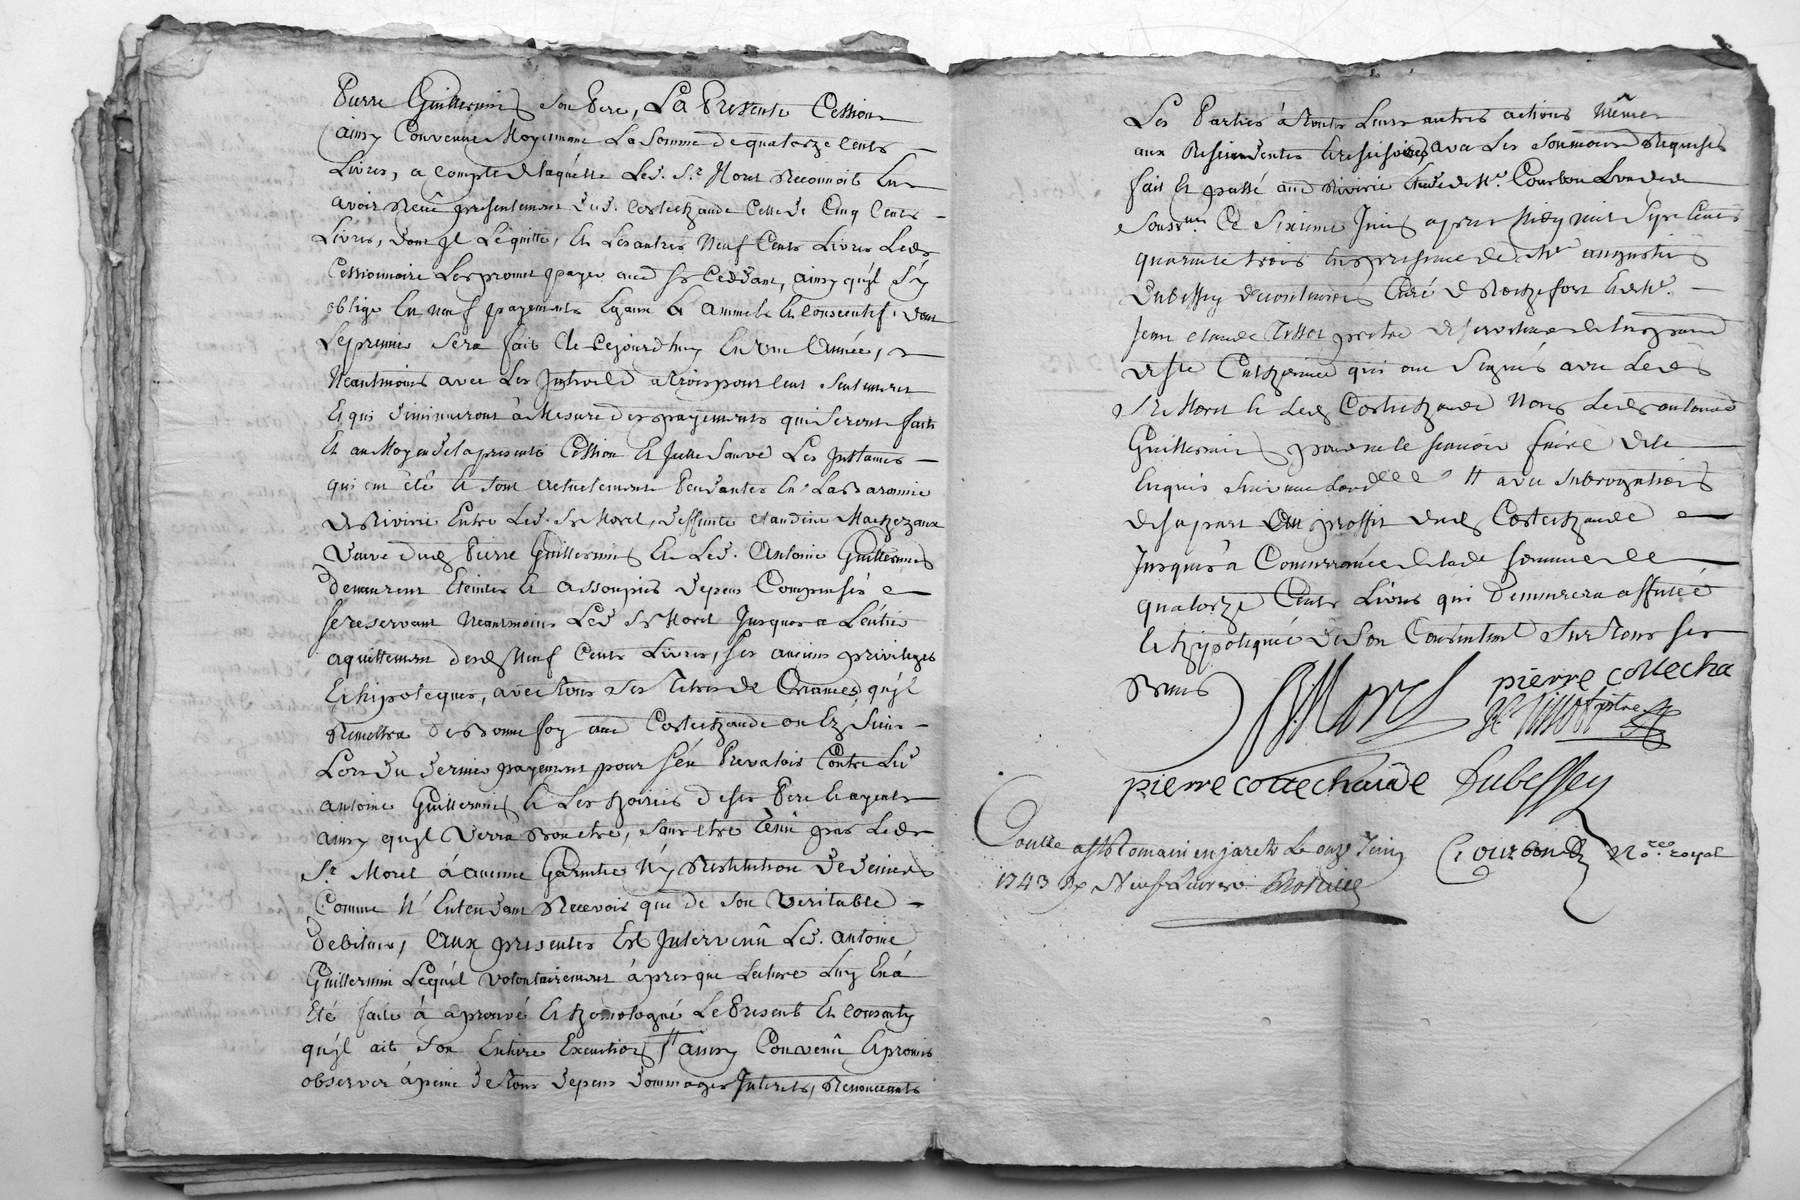 Pierre Guillermin son Pere, La Presente Cession
ainsy Convenue Moyennant La Somme de quatorze Cents
Livres, a compte de laquelle Led. Sr. Morel Reconnoit En
avoir Receu presentement dud. Costechaude Celle de Cinq Cents
Livres, dont Il Lequitte, Et Les autres Neuf Cents Livres Led.
Cessionnaire Les promet payer aud Sr Ceddant, ainsy qu'yl s'y
oblige En neuf payements Egaux & annuels Et consecutif. dont
Le premier Sera fait de Cejourd'huy En Une Année,
Neantmoins avec Les Interets a trois pour Cent Seulement
Et qui diminueront à Mesure des payements qui Seront faits
Et au Moyen de la presente Cession Et Icelle Sauve Les Instances
qui ont été & sont actuelement Pendantes En La Baronnie
de Rivirie Entre Led. Sr Morel, deffunte Claudine
Veuve dud Pierre Guillermin Et Led. Antoine Guillermin
Demeurent Eteintes & assoupies depens Compensés
Se reservant Neantmoins Led Sr Morel Jusques a L'entier
aquittement desd Neuf Cents Livres, ses anciens privileges
Et hipoteques, avec tous ses Titres de Creances, qu'yl
Remettra de Bonne foy aud Costechaude ou Ez Siens
Lors du dernier payement pour s'en Prevaloir Contre Led
antoine Guillermin & Les hoiries de ses Pere &
ainsy qu'yl Verra Bon etre, sans etre Tenû par Led.
Sr. Morel à aucune Garentie N'y Restitution de deniers
Comme N'Entendant Recevoir que de son Veritable
Debiteur, Aux presentes Est Intervenû Led. antoine
Guillermin Lequel volontairement àpres que Lecture Luy En à
Eté faite à aprouvé Et homologué Le Present Et consenty
qu'yl ait son Entiere Execution // ainsy Convenû, & promis
observer à peine de tous depens dommages Interets, Renonceants
Les Parties à toutes Leurs autres actions Même
aux Resindentes & rescisoires avec Les Soumissions Requises
fait Et passé aud Rivirie Etude de Me. Courbon
Souss.né Ce Sixieme Juin apres Midy mil Sept Cents
quarante trois En presence de Mre augustin
Dubessey Curé de Rochefort & de Mre.
Jean Claude Tissot pretre
de Ste Catherine qui ont Signés avec Led
Sr Morel & Led Costechaude Non Led antoine
Guillermin pour ne le scavoir faire de ce
Enquis Suivant Lord.ce // avec Subrogations
de sa part Au proffit dud Costechaude
Jusques à Concurrance de lad somme de
quatorze Cents Livres qui Demeurera affectée
& hypotequée de Son Consentement Sur tous ses
Biens
Morel
pierre cottecha
Jc Tissot ptre
pierre cottechaude Dubessey
Conlle a St Romain en jarets Le onze Juin
1743 Rx Neuf Livres
Courbon No.re royal